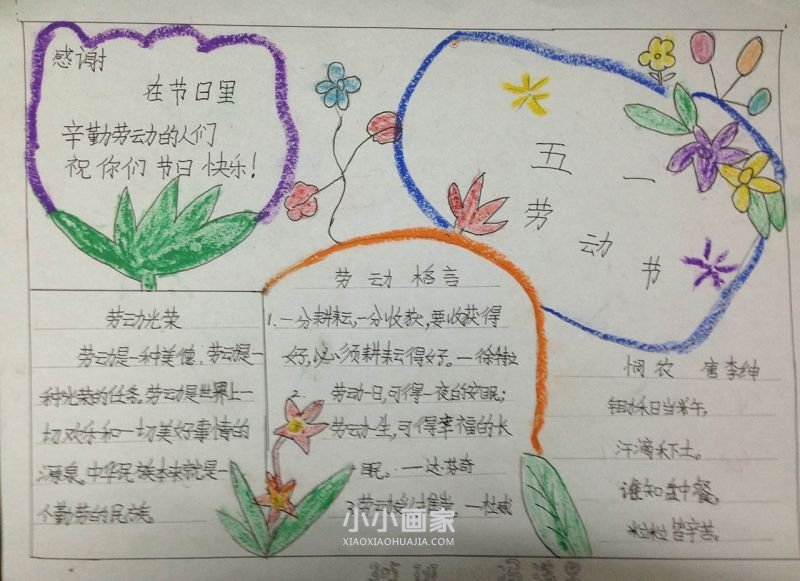 感谢
在节日里
辛勤劳动的人们
祝你们节日快乐!
五一
劳动节
劳动光荣
劳动是一种美德,劳动是一
种光荣的任务。劳动是世界上一
切欢乐和一切美好事情的
源泉。中华民族本来就是一
个勤劳的民族
劳动格言
1.一分耕耘,一分收获,要收获得
好,必须耕耘得好。—徐特立
2. 劳动一日,可得一夜的安眠;
劳动一生,可得幸福的长
眠。—达·芬奇
—杜威
悯农 唐李绅
锄禾日当午,
汗滴禾下土。
谁知盘中餐,
粒粒皆辛苦。
小小画家
XIAOXIAOHUAJIA.COM
305班